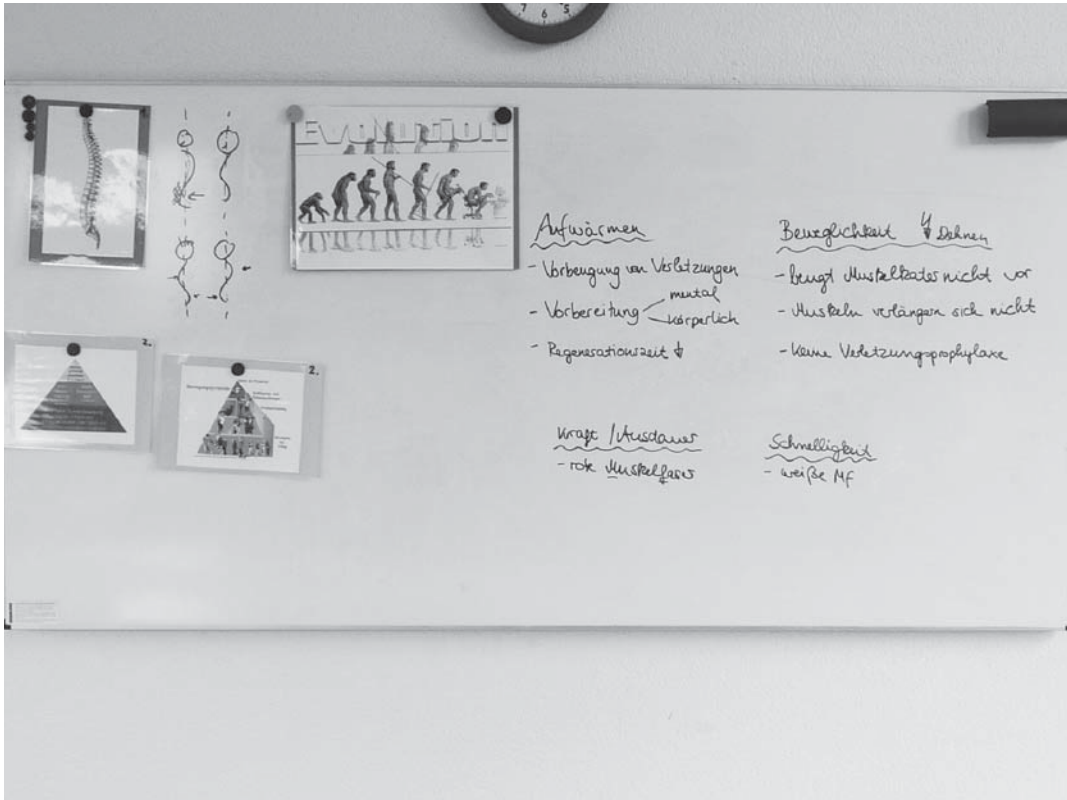 7 6 5
EVOLUTION
Aufwärmen
- Vorbeugung von Verletzungen
- Vorbereitung mental
körperlich
- Regenerationszeit ↓
Beweglichkeit Dehnen
- beugt Muskelkater nicht vor
- Muskeln verlängern sich nicht
- keine Verletzungsprophylaxe
Kraft / Ausdauer
- rote Muskelfaser
Schnelligkeit
- weiße Mf
2.
2.